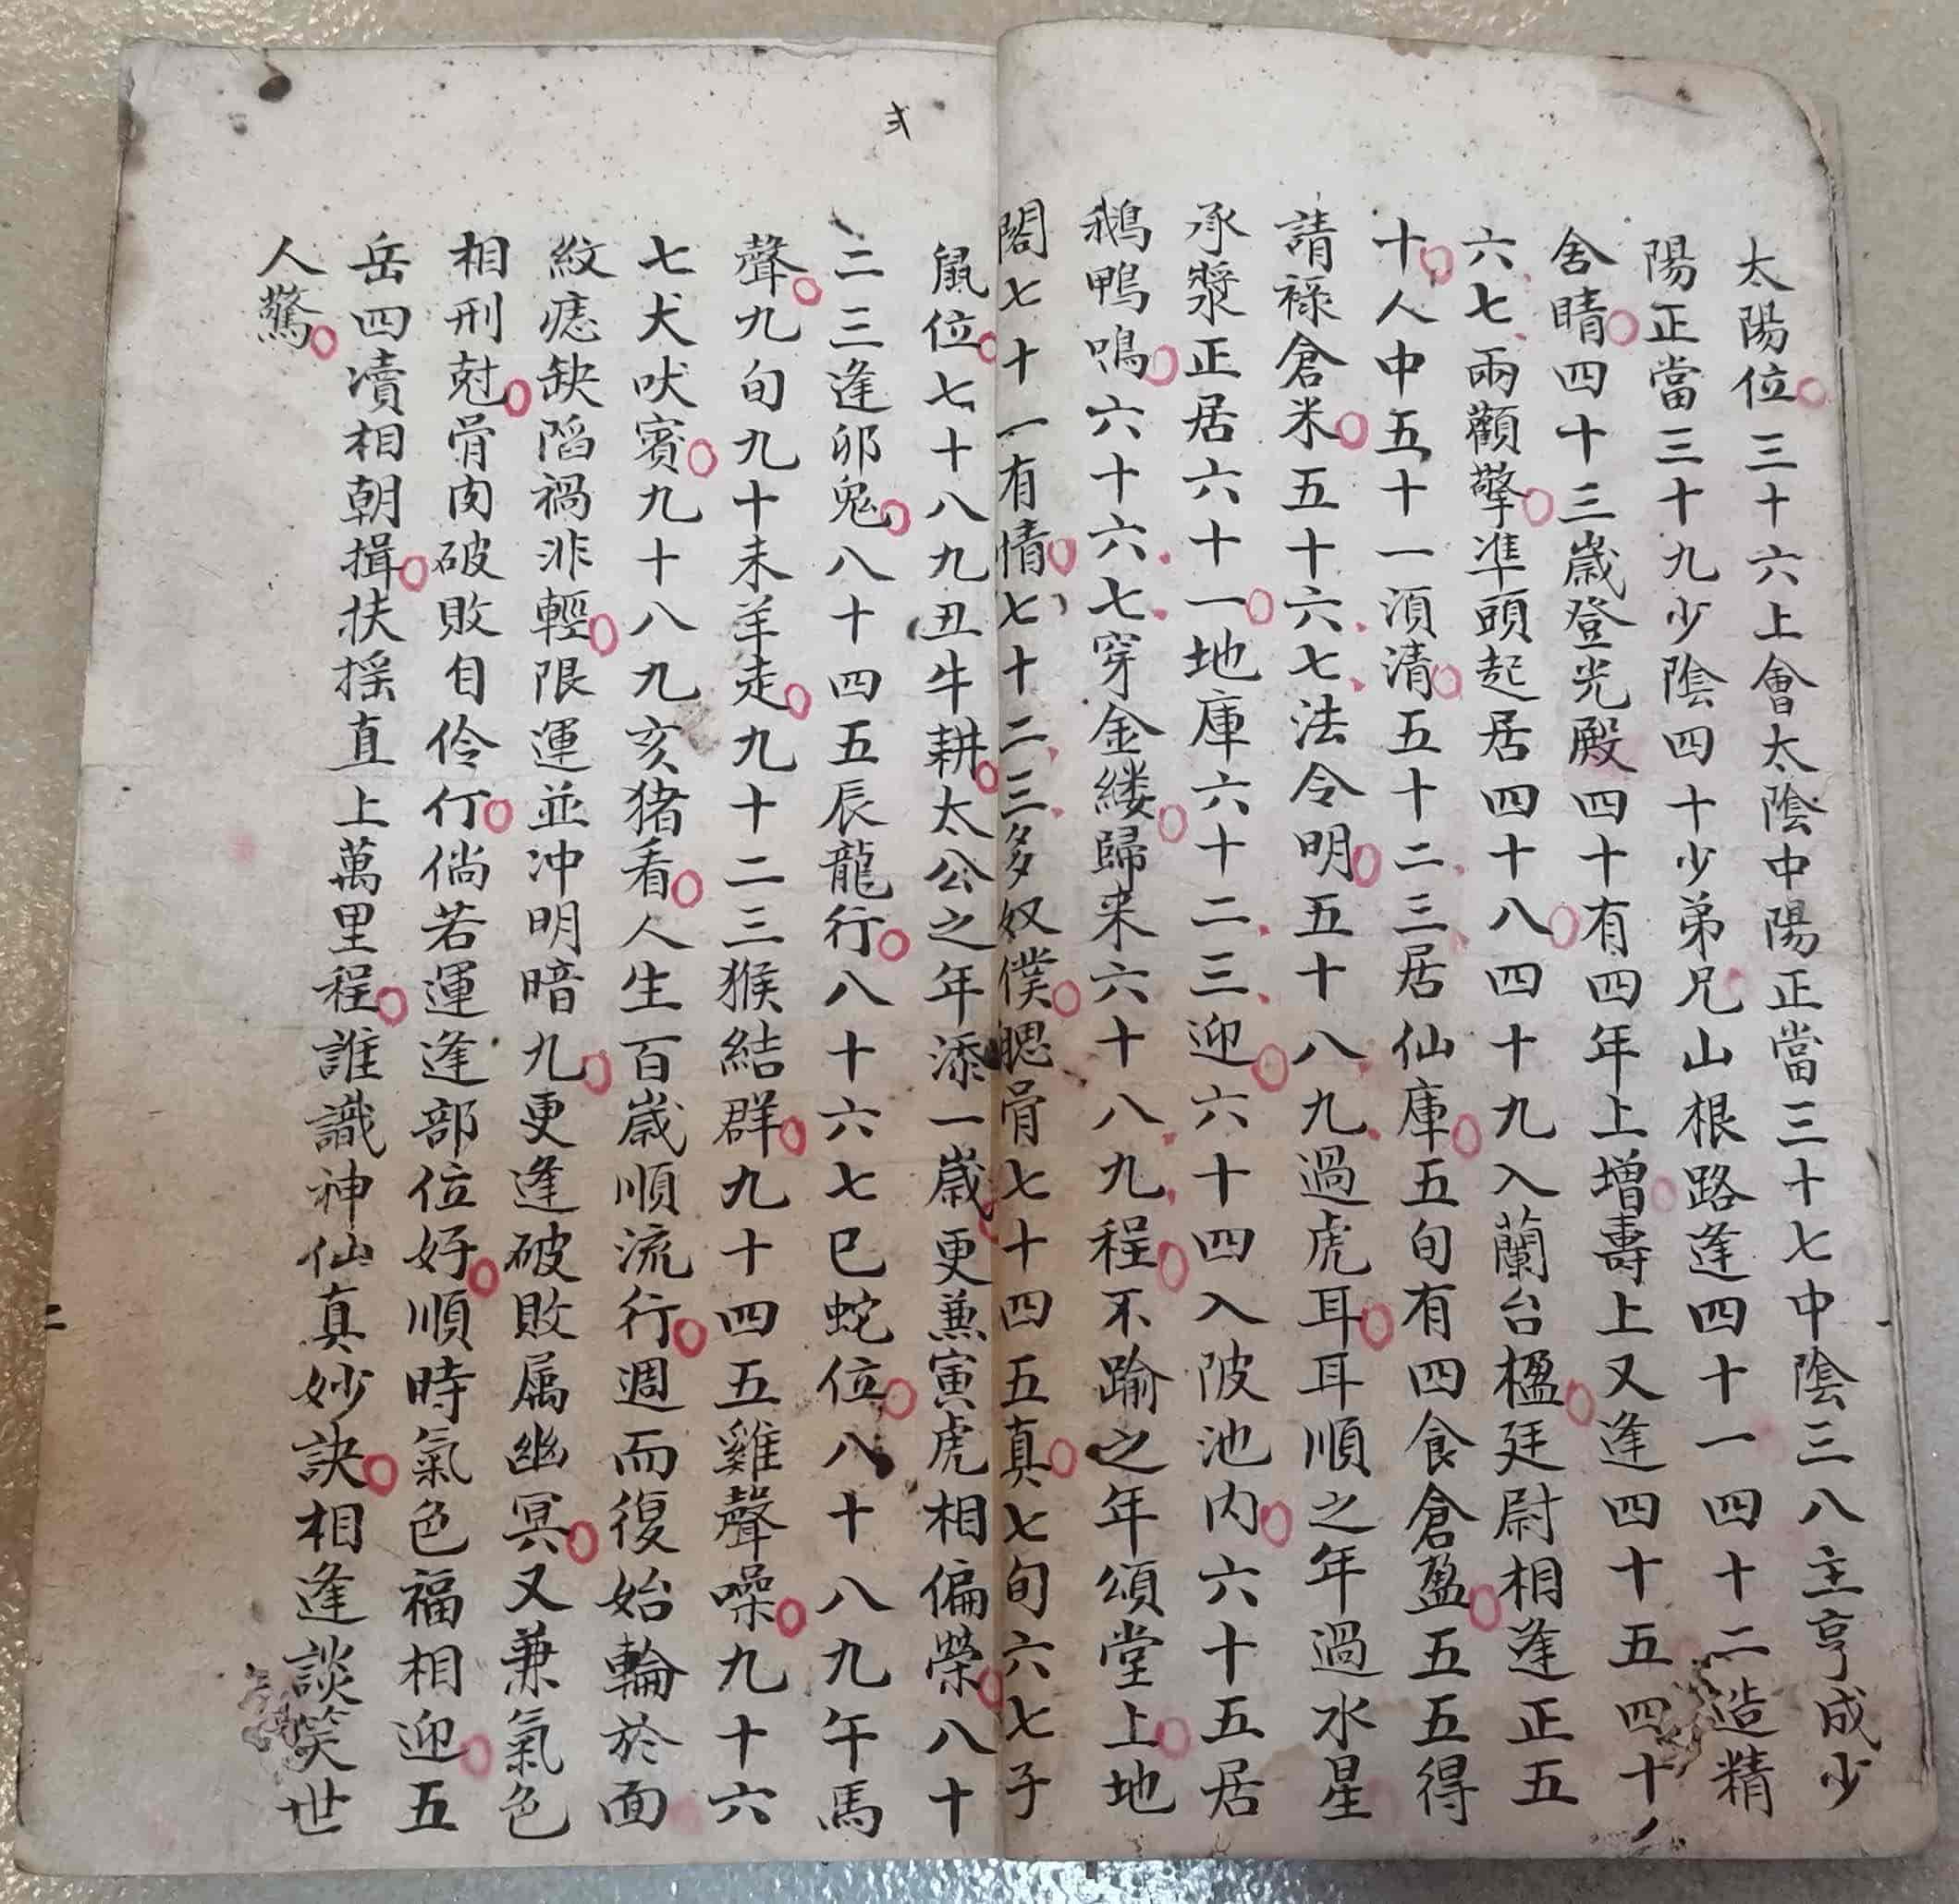 太陽位三十六上會太陰中陽正當三十七中陰三八主亨成少
陽正當三十九少陰四十少弟兄山根路逢四十一四十二造精
舍晴四十三歲登光殿四十有四年上增壽上又逢四十五四十
六七兩顴擎準頭起居四十八四十九入蘭台楹廷尉相逢正五
十人中五十一須清五十二三居仙庫五旬有四食倉盈五五得
請祿倉米五十六七法令明五十八九過虎耳耳順之年過水星
承漿正居六十一地庫六十二三迎六十四入陂池内六十五居
鵝鴨鳴六十六七穿金縷歸来六十八九程不踰之年頌堂上地
閣七十一有情七十二三多奴僕腮骨七十四五真七旬六七子
弍
鼠位七十八九丑牛耕太公之年添一歲更兼寅虎相偏榮八十
二三逢卯兔八十四五辰龍行八十六七巳蛇位八十八九午馬
聲九旬九十未羊走九十二三猴結群九十四五雞聲噪九十六
七犬吠賓九十八九亥猪看人生百歲順流行週而復始輪於面
紋痣缺陷禍非輕限運並冲明暗九更逢破敗属幽冥又兼氣色
相刑尅骨肉破敗自伶仃倘若運逢部位好順時氣色福相迎五
岳四瀆相朝揖扶搖直上萬里程誰識神仙真妙訣相逢談笑世
人驚